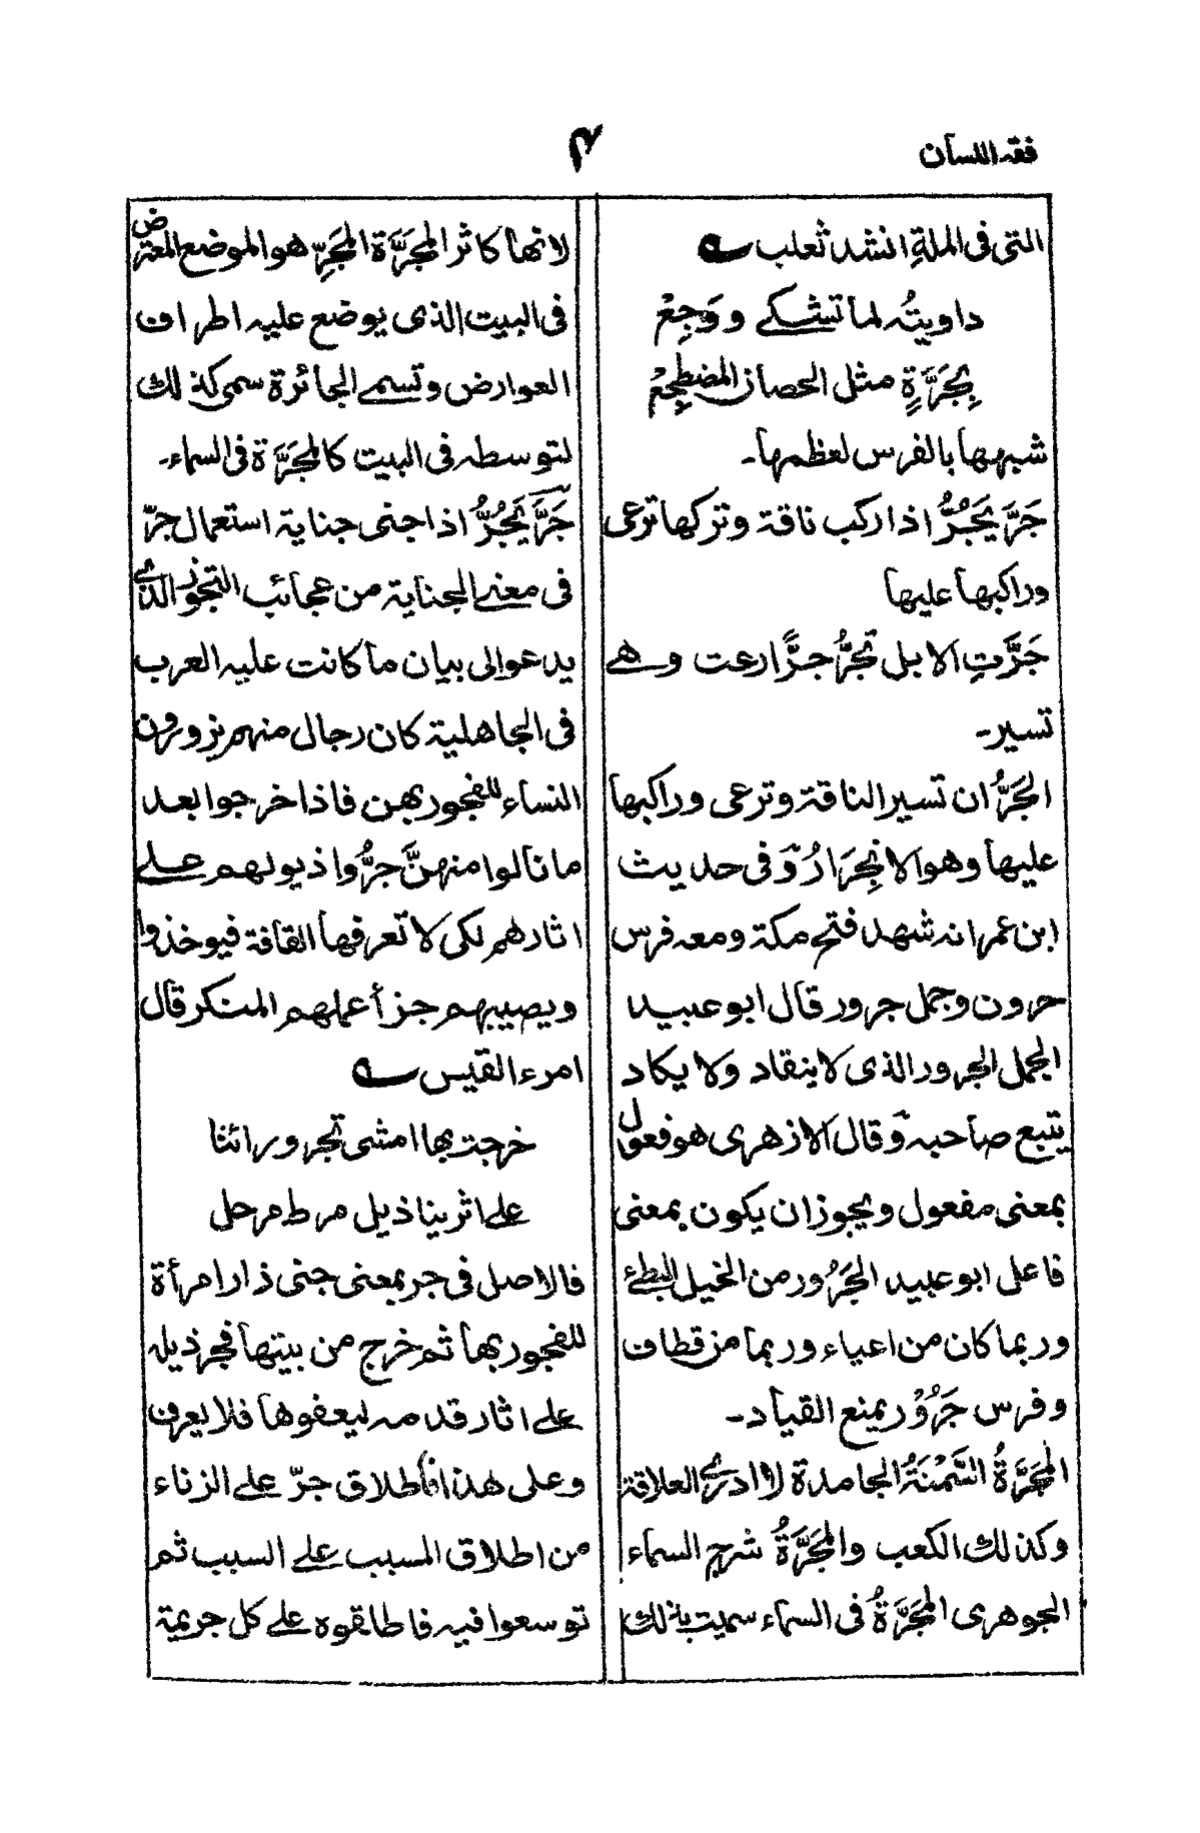 فقه اللسان
٣
التى فى الملةِ انشد ثعلب ؎
داويتُه لما تشكے ووَجِعْ
بِجَرَّةٍ مثل الحصان المضطجِعْ
شبهها بالفرس لعظمها۔
جَرَّ يَجُرُّ اذا ركب ناقة وتركها ترعى
وراكبها عليها
جَرَّتِ الابل تَجُرُّ جرًّا رعت وهے
تسير۔
الجَرُّ ان تسير الناقة وترعى وراكبها
عليها وهو الانجِرَارُ وفى حديث
ابن عمر انه شهد فتح مكة ومعه فرس
حرون وجمل جرور قال ابو عبيد
الجمل الجرور الذى لا ينقاد ولا يكاد
يتبع صاحبه وقال الازهرى هو فعول
بمعنى مفعول ويجوز ان يكون بمعنى
فاعل ابو عبيد الجَرُور من الخيل البطئ
وربما كان من اعياء وربما من قطاف
وفرس جَرُوْر يمنع القياد۔
المَجَرَّةُ السَّمْنَةُ الجامدة لا ادرى العلاقة
وكذلك الكعب والمَجَرَّةُ شرج السماء
الجوهرى المَجَرَّةُ فى السماء سميت بذلك
لانها كاثر المَجَرَّة المَجَرّ هو الموضع المعترض
فى البيت الذى يوضع عليه اطراف
العوارض وتسمے الجائزة سمى كذلك
لتوسطه فى البيت كالمَجَرَّة فى السماء۔
جَرَّ يَجُرُّ اذا جنى جناية استعمال جرّ
فى معنے الجناية من عجائب التجوز الذى
يدعو الى بيان ما كانت عليه العرب
فى الجاهلية كان رجال منهم يزورون
النساء للفجور بهن فاذا خرجوا بعد
ما نالوا منهنَّ جرُّوا ذيولهم علے
اثارهم لكى لا تعرفها القافة فيوخذوا
ويصيبهم جزأ عملهم المنكر قال
امرء القيس ؎
خرجت بها امشى تجر ورائنا
علے اثرينا ذيل مرط مرحل
فالاصل فى جر بمعنى جنى زار امرأة
للفجور بها ثم خرج من بيتها فجر ذيله
علے اثار قدمه ليعفوها فلا يعرف
وعلى هذا فاطلاق جرّ علے الزناء
من اطلاق المسبب علے السبب ثم
توسعوا فيه فاطلقوه علے كل جريمة